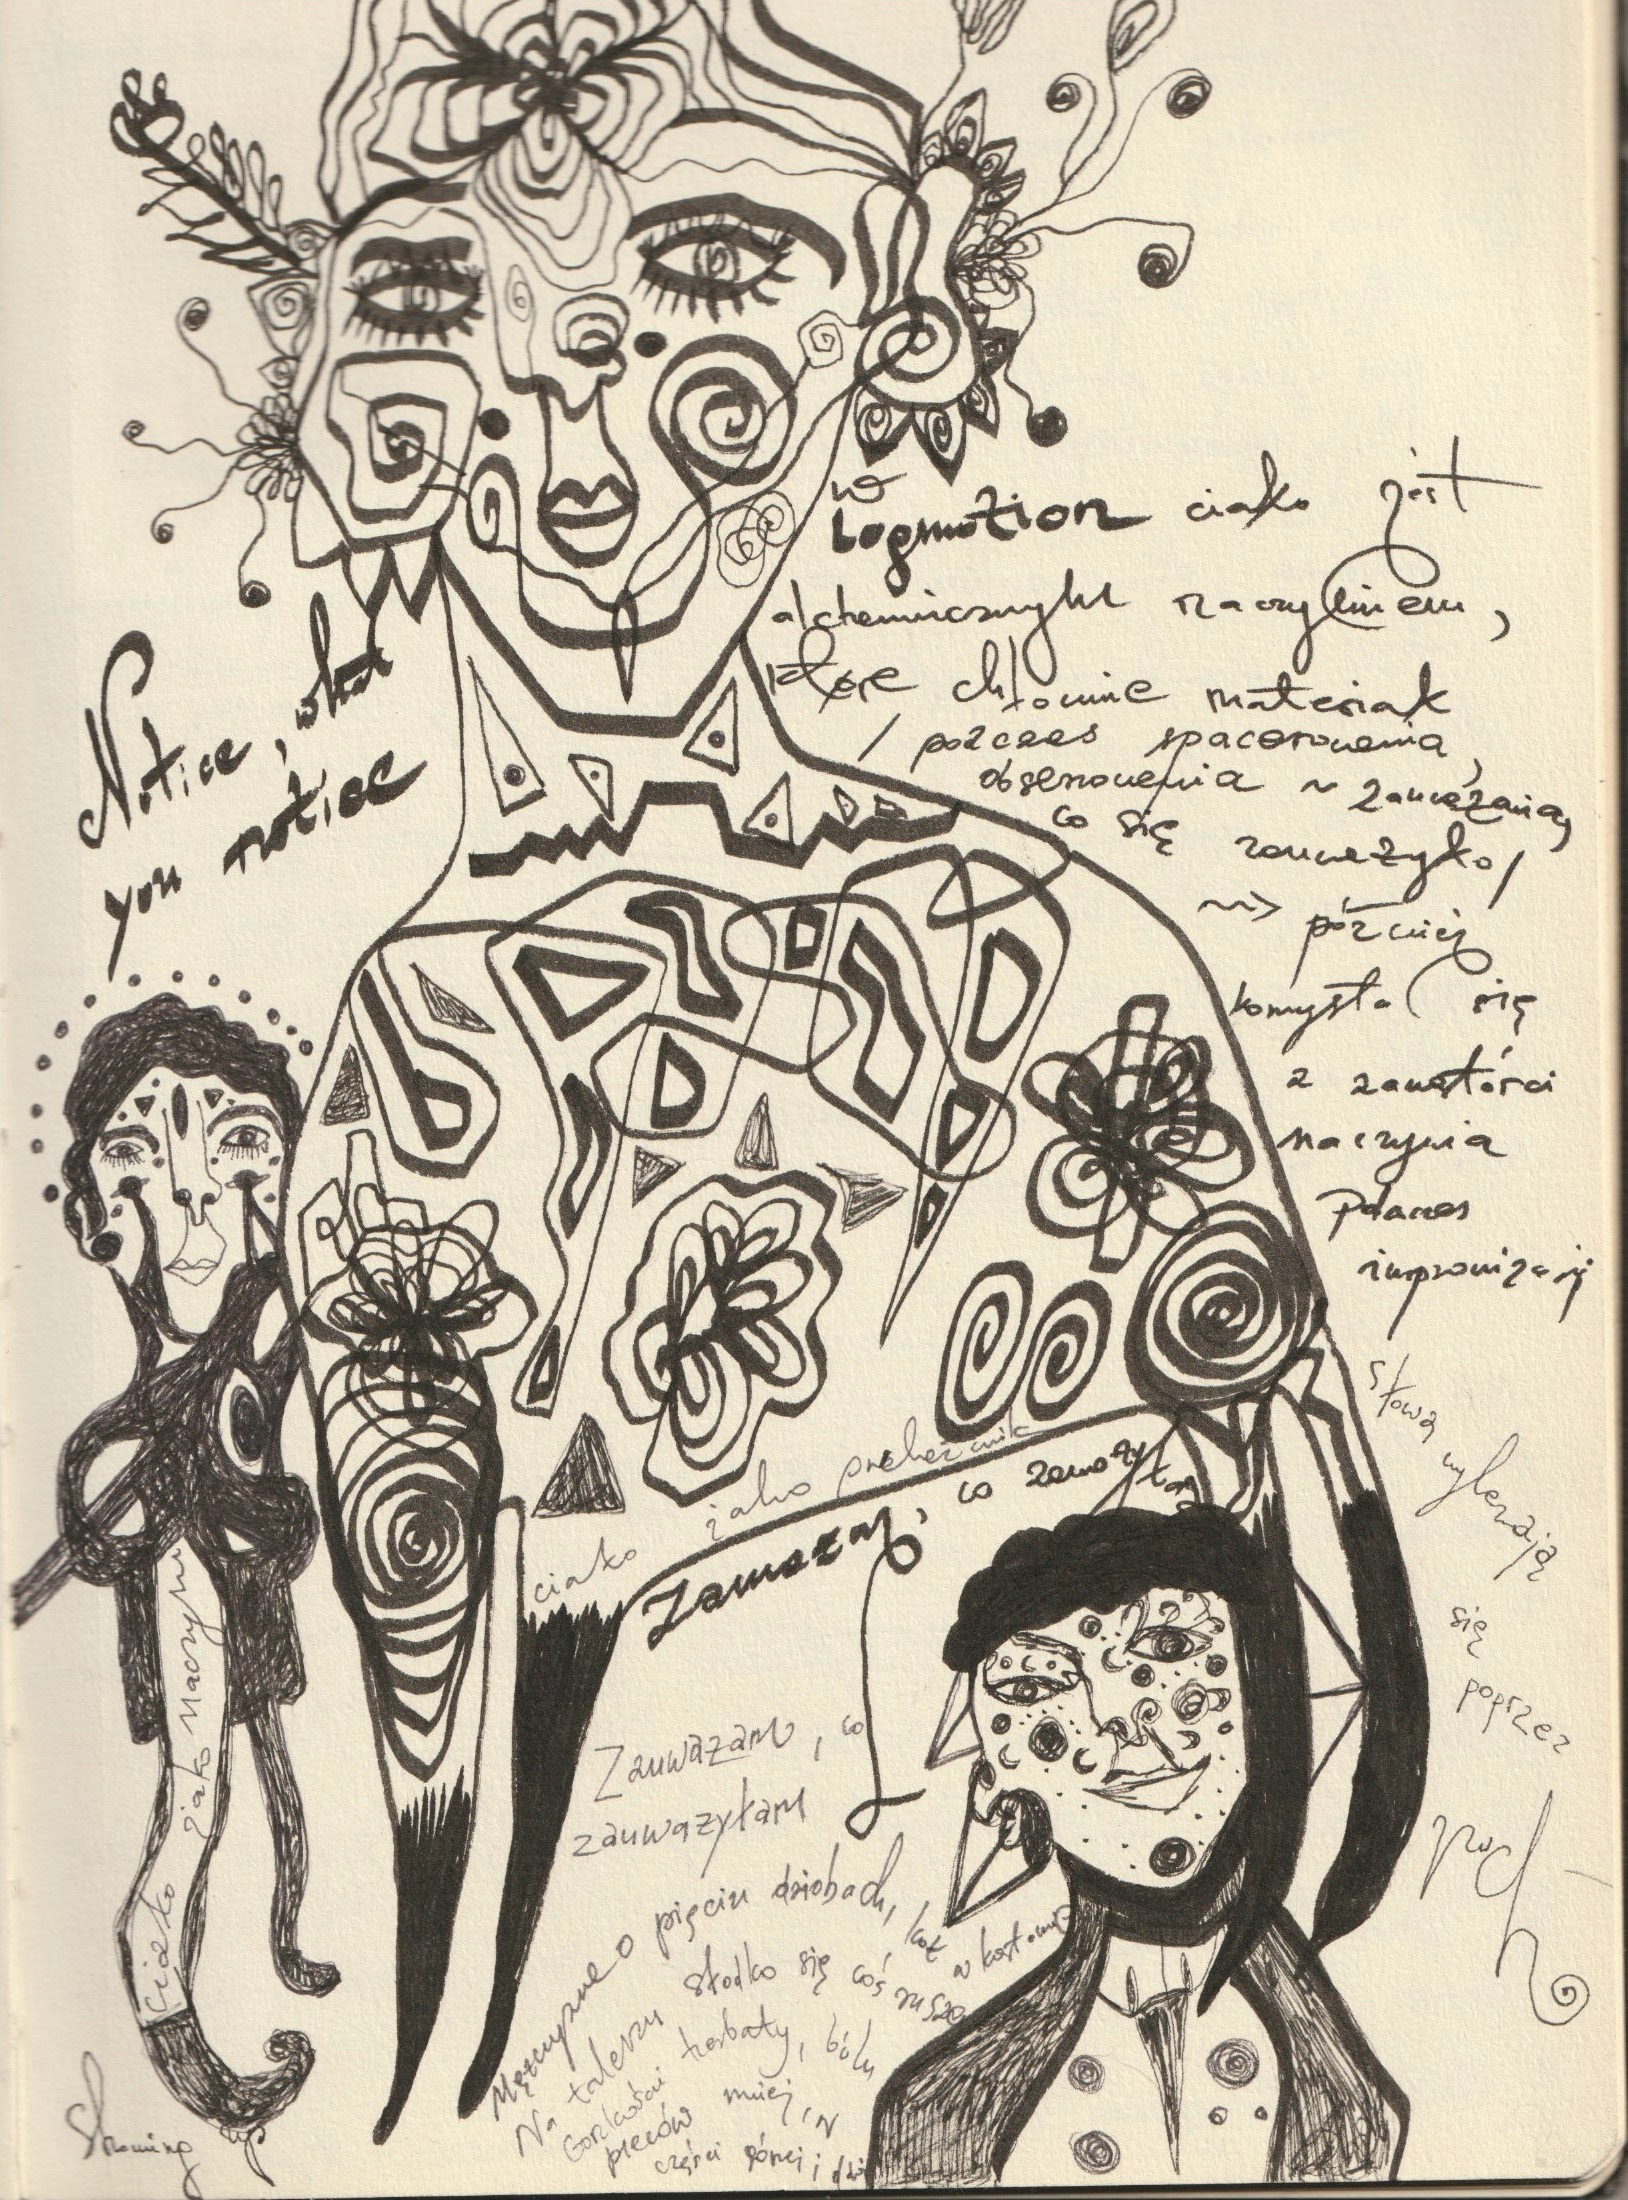 Notice, what
you notice
w
Logmotion ciało jest
alchemicznym naczyniem,
które chłonie materiał
/ podczas spacerowania,
obserwowania ~ zauważania,
co się zauważyło/
~~> później
korzysta się
z zawartości
naczynia
podczas
improwizacji
słowa
wylewają
się
poprzez
ruch
ciało jako przekaźnik
Zauważam, co zauważyłam
Zauważam, co
zauważyłam
ciało jako naczynie
Mężczyzna o pięciu dziobach, kot w kostiumie
Na talerzu słodko się coś rusza
Gorzkości herbaty, bólu
pleców mniej, w
części górnej i